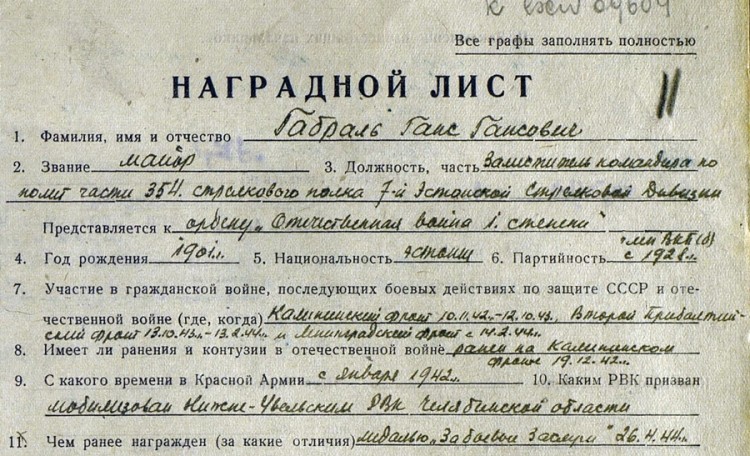 к
Все графы заполнять полностью
НАГРАДНОЙ ЛИСТ
11
1. Фамилия, имя и отчество Габраль Ганс Гансович
2. Звание майор 3. Должность, часть Заместитель командира по
полит части 354. стрелкового полка 7-й Эстонской Стрелковой Дивизии
Представляется к ордену „Отечественная война 1. степени"
4. Год рождения 1901г. 5. Национальность эстонец 6. Партийность член ВКП(б) с 1928г.
7. Участие в гражданской войне, последующих боевых действиях по защите СССР и оте-
чественной войне (где, когда) Калининский фронт 10.11.42-12.10.43. Второй Прибалтий-
ский фронт 13.10.43г.-13.2.44г. и Ленинградский фронт с 14.2.44г.
8. Имеет ли ранения и контузии в отечественной войне ранен на Калининском
фронте 19.12.42г.
9. С какого времени в Красной Армии с января 1942г. 10. Каким РВК призван
мобилизован Нижне-Увельским РВК Челябинской области
11. Чем ранее награжден (за какие отличия) медалью „За боевые Заслуги" 26.4.44г.